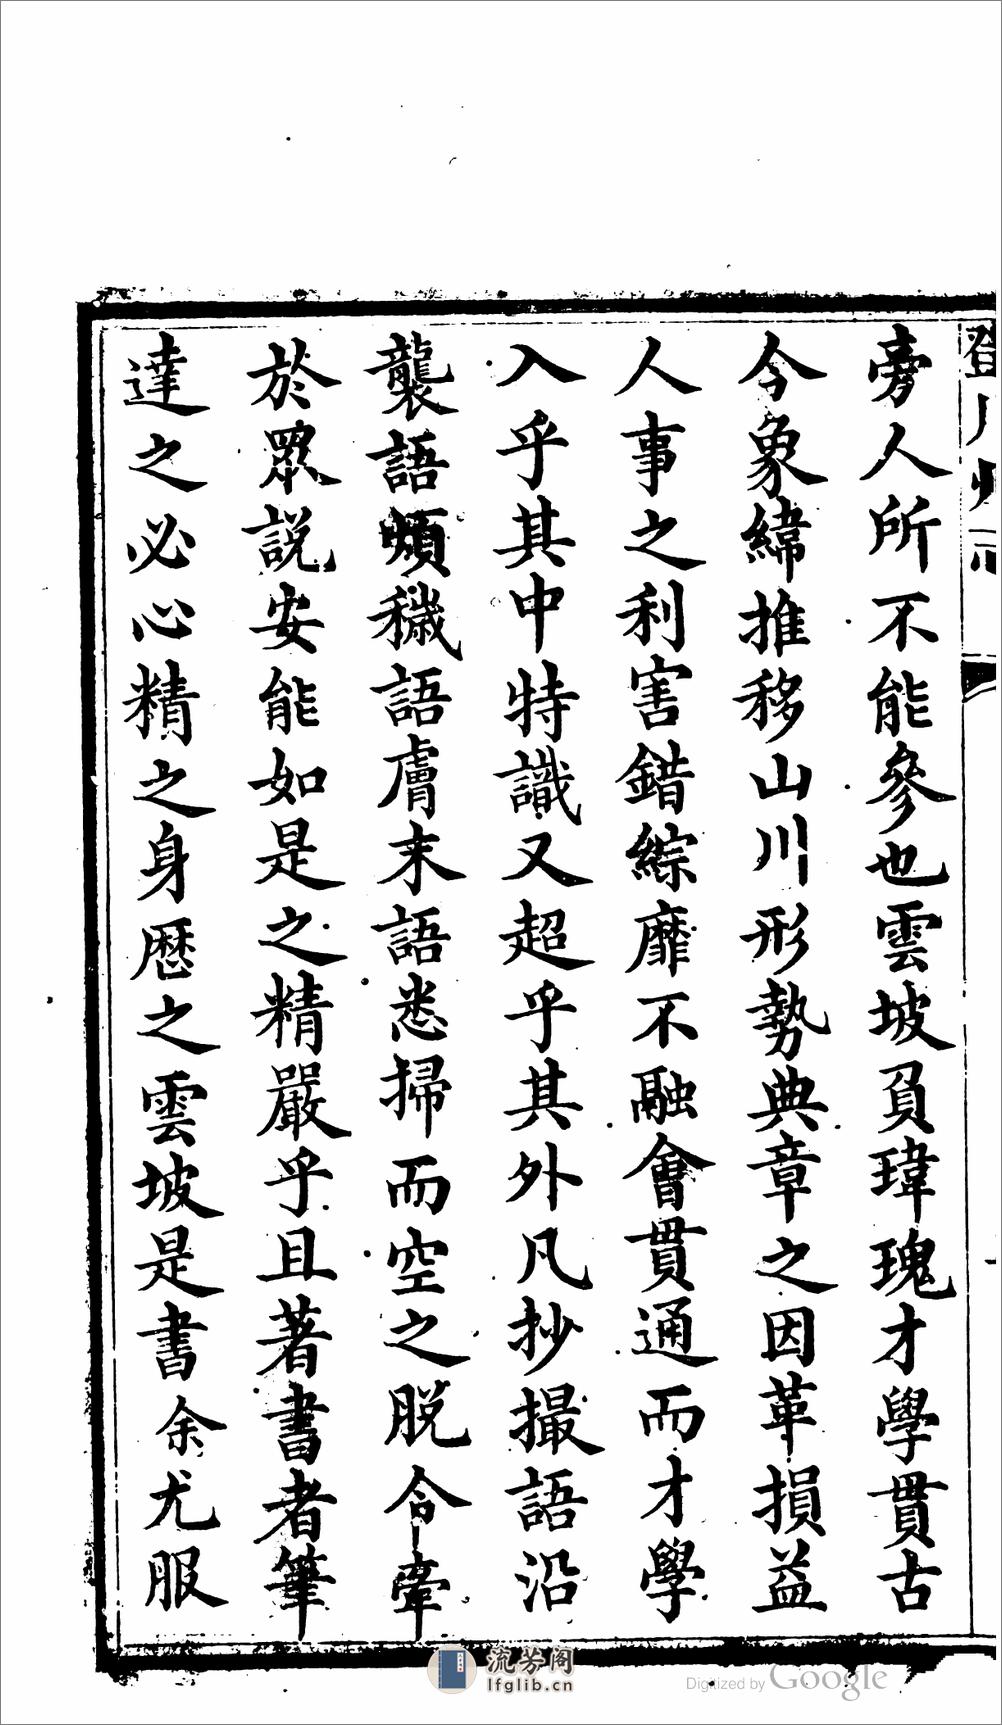 旁人所不能參也雲坡負瑋瑰才學貫古
今象緯推移山川形勢典章之因革損益
人事之利害錯綜靡不融會貫通而才學
入乎其中特識又超乎其外凡抄撮語沿
襲語煩穢語膚末語悉掃而空之脱令牽
於眾説安能如是之精嚴乎且著書者筆
達之必心精之身歴之雲坡是書余尤服
流芳阁
lfglib.cn
Digitized by Google